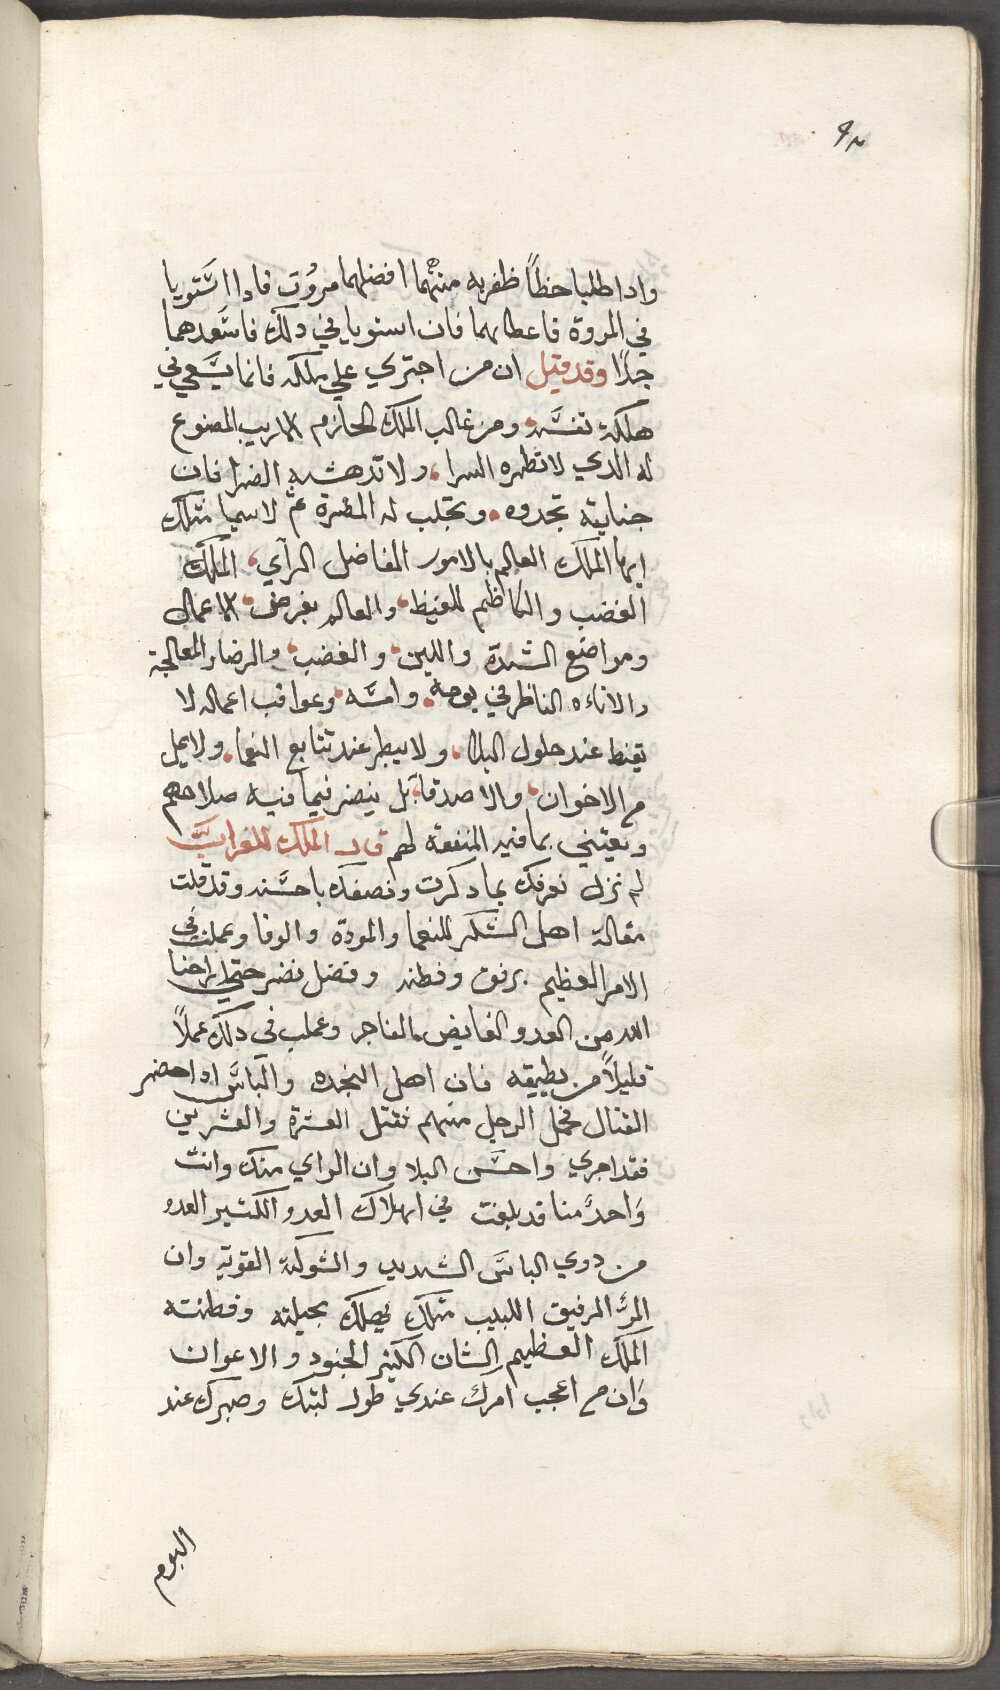 ٩٨
واذا طلبا حظاً ظفر به منهما افضلهما مروُت فاذا استويا
في المروة فاعطاهما فان استويا في ذلك فاسعدهما
جدًا وقد قيل ان من اجتري علي ملكه فانما يسعي في
هلكة نفسه ومن غالب الملك الحازم الاريب المصنوع
له الذي لا تطره السرا ولا تدهشه الضرا فان
جنايته تحدوه وتجلب له المضرة ثم لاسيما مثلك
ايها الملك العالم بالامور الفاضل الرآي الملك
الغضب والكاظم للغيظ والعالم بفرض الاعمال
ومواضع الشدة واللين والغضب والرضا والمعالجة
والاناءه الناظر في يومه وامسه وعواقب اعماله لا
يقنط عند حلول البلا ولا يبطر عند تتابع النعما ولا يمل
من الاخوان والاصدقا بل ينضر فيما فيه صلاحهم
ويعتني بما فيه المنفعة لهم قال الملك للغراب
لم نزل نعرفك بما ذكرت ونصفك باحسنه وقد قلت
مقالة اهل الشكر للنعما والمودة والوفا وعملت في
الامر العظيم برفق وفطنه وفضل نضر حتي اراحنا
الله من العدو الغايض الفاجر وعملت في ذلك عملاً
قليلاً من يطيقه فان اهل النجده والباس اذا حضر
القتال فحمل الرجل منهم فقتل العشرة والعشرين
فقد اجري واحسن البلا وان الراي منك وانت
واحدً منا قد بلغت في اهلاك العدو الكثير العدو
من ذوي الباس الشديد والشوكة القوية وان
المرء الرفيق اللبيب مثلك يهلك بحيلته وفطنته
الملك العظيم الشان الكثير الجنود والاعوان
وان من اعجب امرك عندي طول لبثك وصبرك عند
البوم